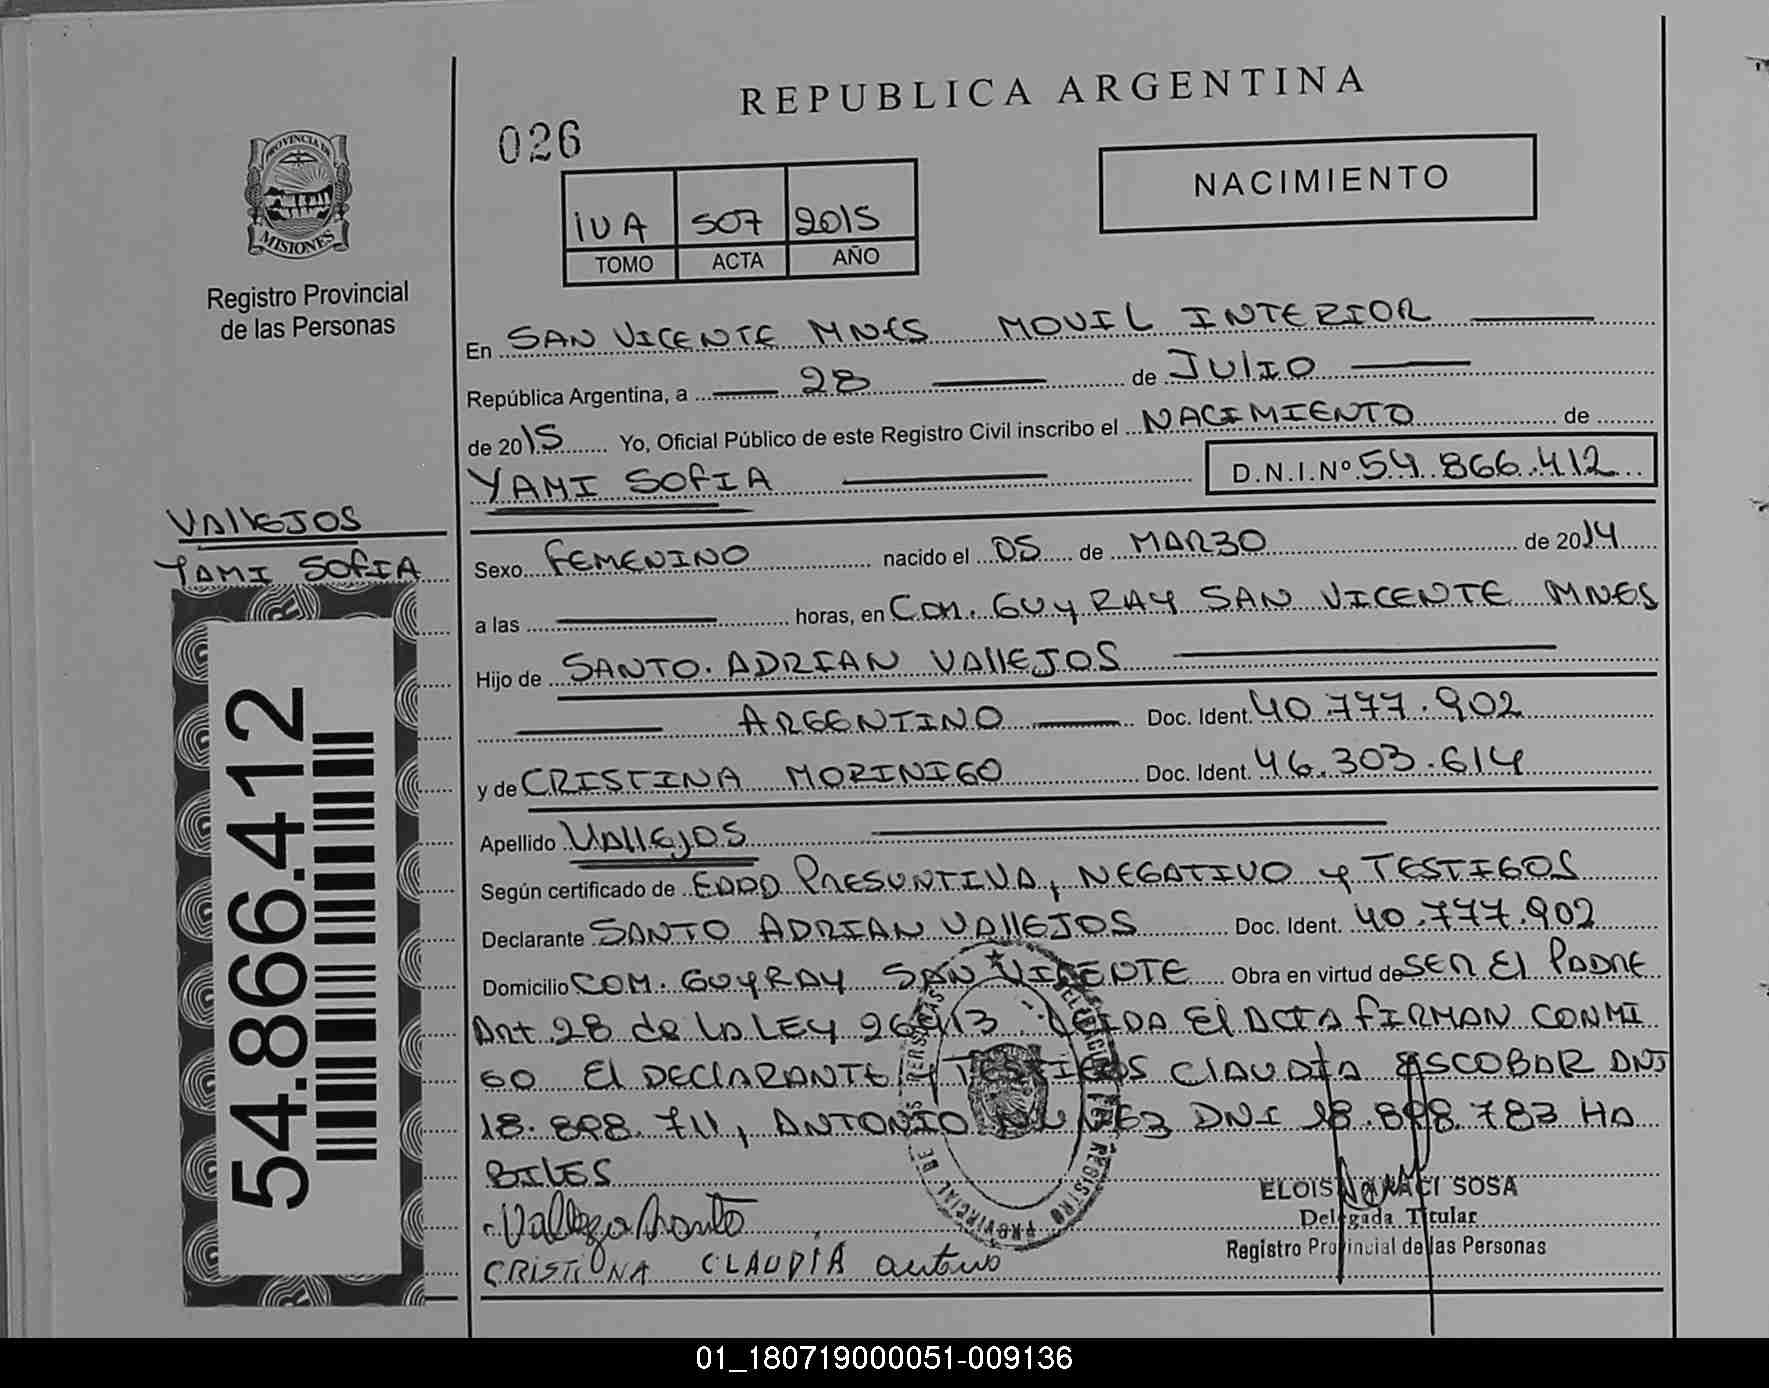 REPUBLICA ARGENTINA
026
NACIMIENTO
PROVINCIA DE
MISIONES
Registro Provincial
de las Personas
IVA 507 2015
TOMO ACTA AÑO
En SAN VICENTE MNES MOVIL INTERIOR
República Argentina, a 28 de JULIO
de 2015 Yo, Oficial Público de este Registro Civil inscribo el NACIMIENTO de
YAMI SOFIA D.N.I.Nº 54.866.412
VALLEJOS
YAMI SOFIA
54.866.412
Sexo FEMENINO nacido el 05 de MARZO de 2014
a las horas, en COM. GUYRAY SAN VICENTE MNES
Hijo de SANTO ADRIAN VALLEJOS
ARGENTINO Doc. Ident. 40.777.902
y de CRISTINA MORINIGO Doc. Ident. 46.303.614
Apellido VALLEJOS
Según certificado de EDAD PRESUNTIVA, NEGATIVO y TESTIGOS
Declarante SANTO ADRIAN VALLEJOS Doc. Ident. 40.777.902
Domicilio COM. GUYRAY SAN VICENTE Obra en virtud de SER El PADRE
Art. 28 de la LEY 26413 LEIDA El ACTA FIRMAN CONMI
GO El DECLARANTE y TESTIGOS CLAUDIA ESCOBAR DNI
18.898.711, ANTONIO DNI 18.898.783 HA
BILES
Vallejo Santo
CRISTIONA CLAUDIA antonio
REGISTRO PROVINCIAL DE LAS PERSONAS
SOSA
Delegada Titular
Registro Provincial de las Personas
01_180719000051-009136